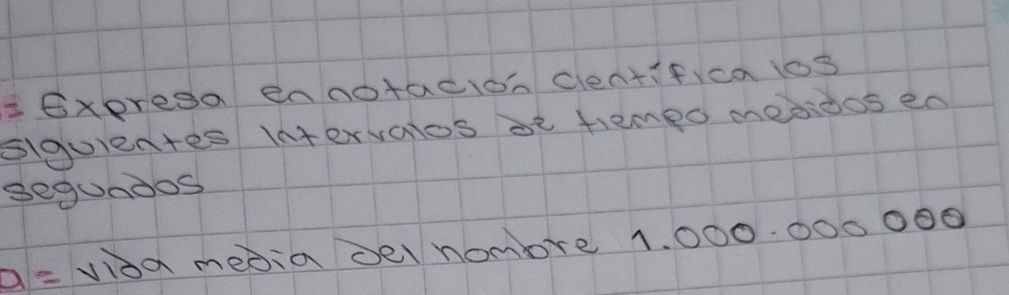 = Expresa en notación cientifica los
siguientes intervalos de tiempo medidos en
segundos
a = vida media del hombre 1.000.000 000